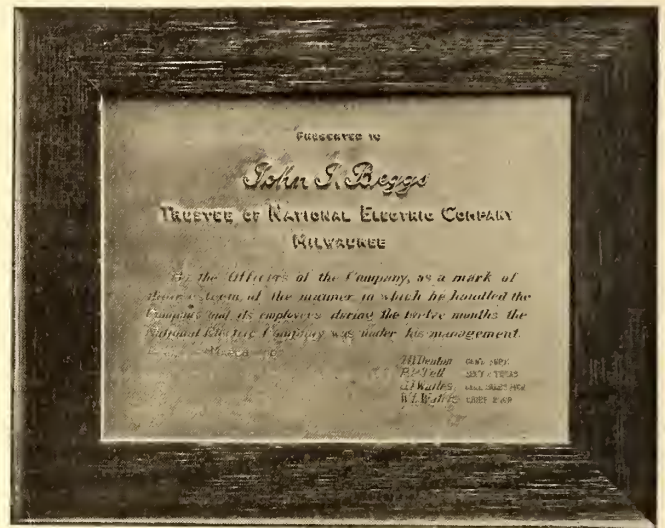 PRESENTED TO
John I. Beggs
TRUSTEE OF NATIONAL ELECTRIC COMPANY
MILWAUKEE
By the Officers of the Company, as a mark of
their esteem of the manner in which he handled the
Company and its employees during the twelve months the
National Electric Company was under his management.
GENL SUPT.
SECY & TREAS
W.L. Waters CHIEF ENGR